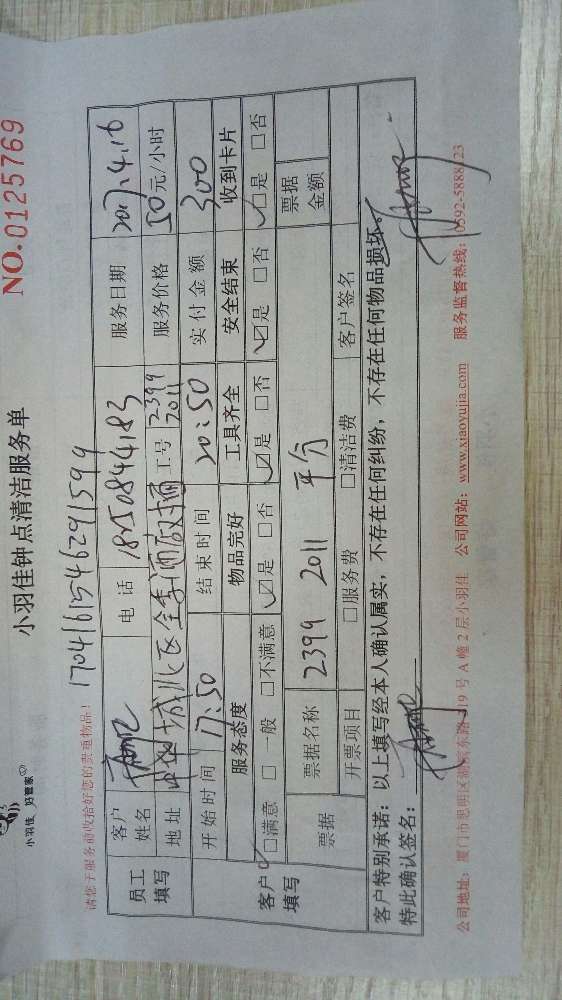 小羽佳 好管家
小羽佳钟点清洁服务单
NO.0125769
请您于服务前收拾好您的贵重物品！
1704161546291599
员工填写
客户姓名
电话 18150844183
服务日期 2017.4.16
地址
工号 2399 2011
服务价格 50元/小时
开始时间 17:50
结束时间 20:50
实付金额 300
客户填写
服务态度 物品完好 工具齐全 安全结束 收到卡片
☑满意 □一般 □不满意 ☑是 □否 ☑是 □否 ☑是 □否 ☑是 □否
票据
票据名称 2399 2011 平分
票据金额
开票项目 □服务费 □清洁费 客户签名
客户特别承诺：以上填写经本人确认属实，不存在任何纠纷，不存在任何物品损坏。
特此确认签名：
公司地址：厦门市思明区湖滨东路319号A幢2层小羽佳 公司网站：www.xiaoyujia.com 服务监督热线：0592-5888123